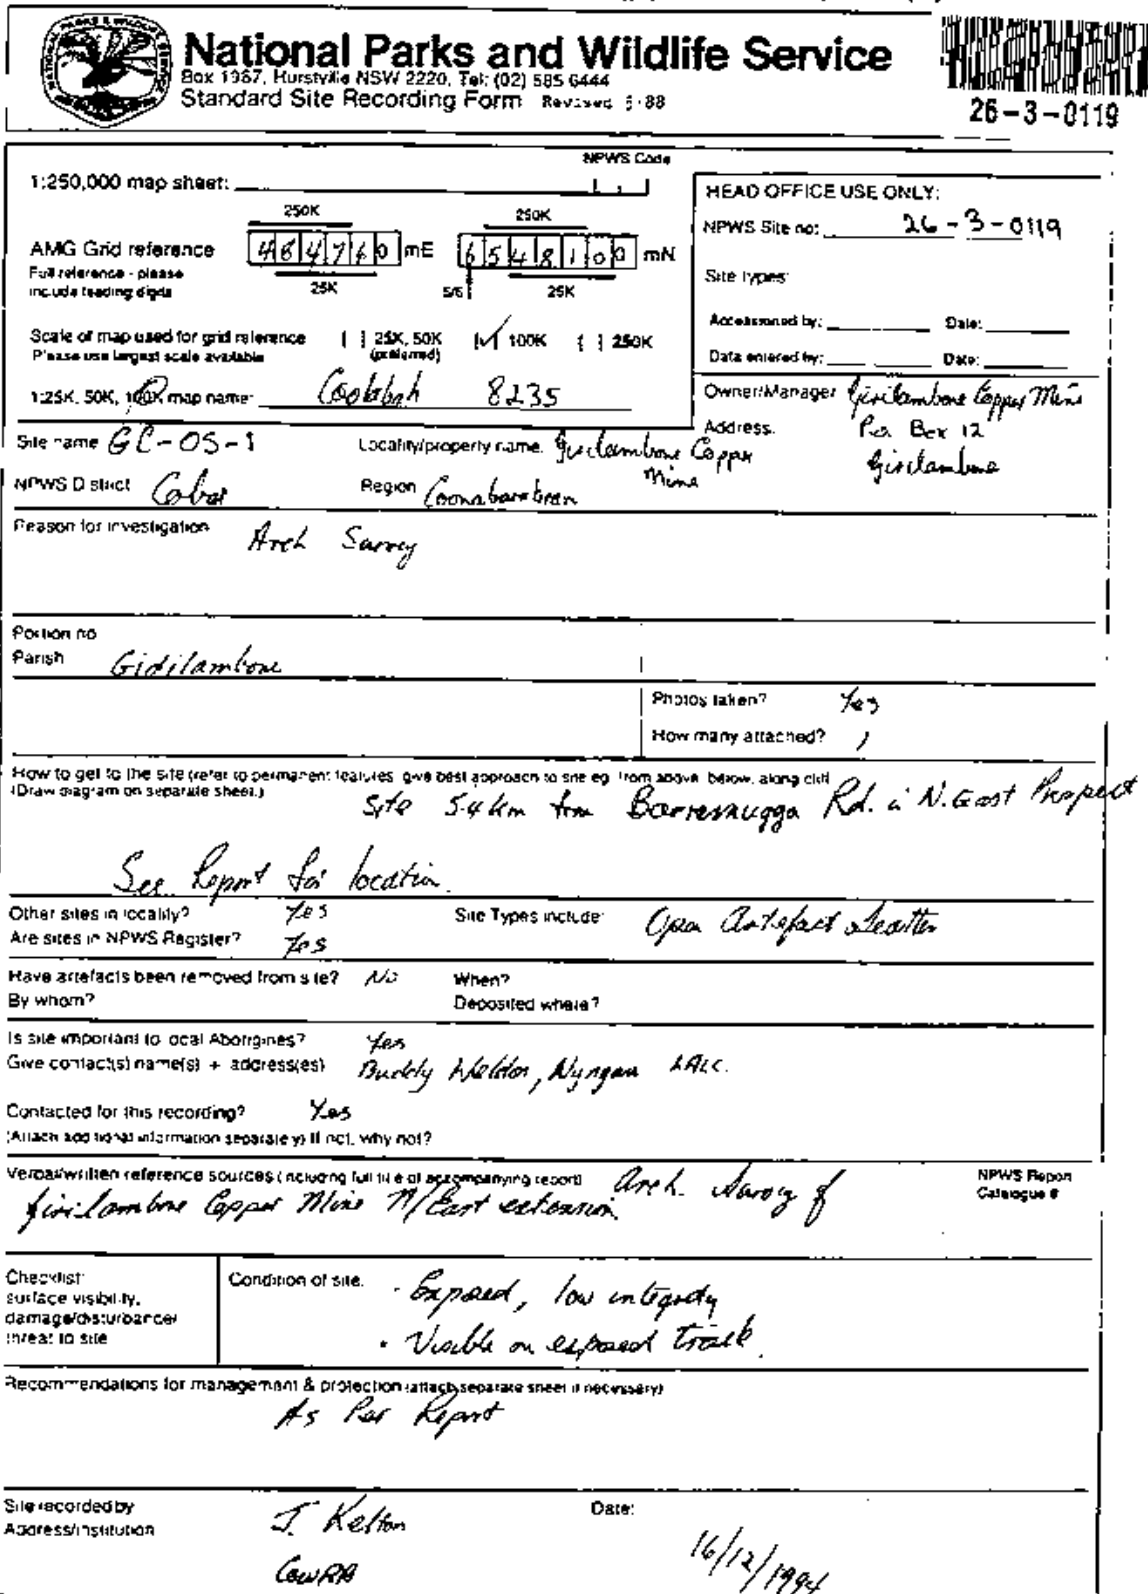 National Parks and Wildlife Service
Box 1967, Hurstville NSW 2220, Tel: (02) 585 6444
Standard Site Recording Form Revised 5·88
26-3-0119
NPWS Code
1:250,000 map sheet:
HEAD OFFICE USE ONLY:
250K 250K
NPWS Site no: 26-3-0119
AMG Grid reference 484760 mE 6548100 mN
Full reference - please
include leading digits
25K 5/6 25K
Site types:
Accessioned by: Date:
Scale of map used for grid reference [ ] 25K, 50K [✓] 100K [ ] 250K
Please use largest scale available (preferred)
Data entered by: Date:
1:25K, 50K, 100K map name: Coolabah 8235
Owner/Manager Girilambone Copper Mine
Address: P.O. Box 12
Girilambone
Site name GC-OS-1 Locality/property name: Girilambone Copper
Mine
NPWS District Cobar Region Coonabarabran
Reason for investigation Arch Survey
Portion no
Parish Gidilambone
Photos taken? Yes
How many attached?
How to get to the site (refer to permanent features, give best approach to site eg. from above, below, along cliff
(Draw diagram on separate sheet.)
Site 5.4 km from Rd. in N. East Prospect
See Report for location.
Other sites in locality? Yes Site Types include: Open Artefact Scatter
Are sites in NPWS Register? Yes
Have artefacts been removed from site? No When?
By whom? Deposited where?
Is site important to local Aborigines? Yes
Give contact(s) name(s) + address(es) Buddy Weldon, Nyngan LALC.
Contacted for this recording? Yes
(Attach additional information separately) If not, why not?
Verbal/written reference sources (including full title of accompanying report) Arch. Survey of
Girilambone Copper Mine N/East extension.
NPWS Report
Catalogue #
Checklist:
surface visibility,
damage/disturbance/
threat to site
Condition of site. · Exposed, low integrity
· Visible on exposed track.
Recommendations for management & protection (attach separate sheet if necessary)
As Per Report
Site recorded by J. Kelton Date: 16/12/1994
Address/institution COWRA